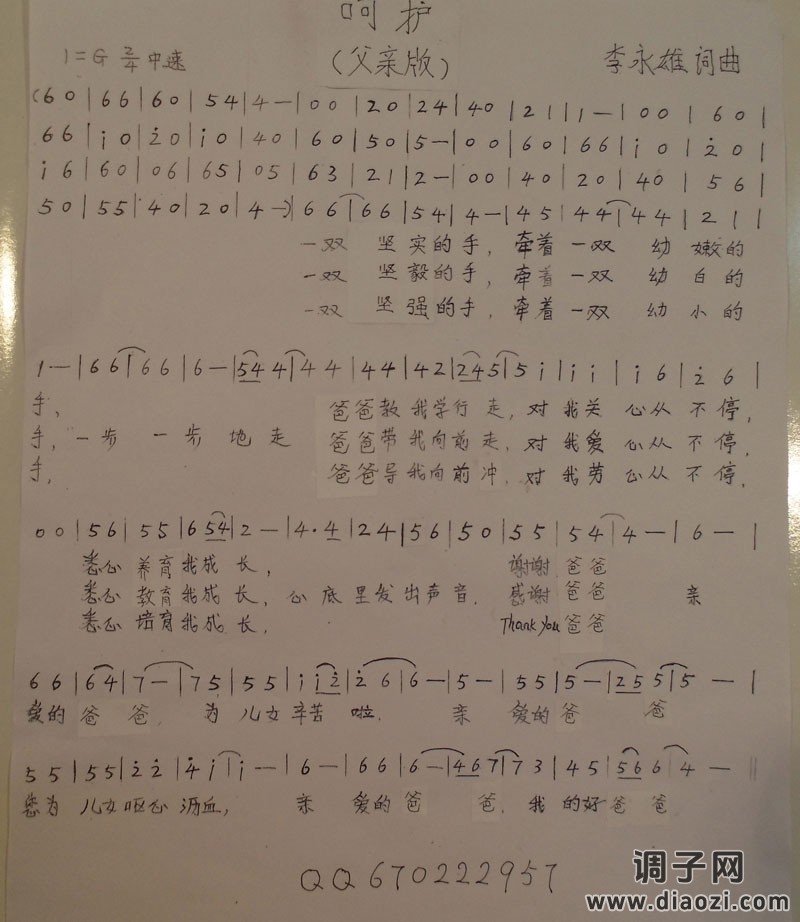 呵护
1=G 2/4 中速 （父亲版） 李永雄 词曲
(60|66|60|54|4—|00|20|24|40|21|1—|00|60|
66|i0|2̇0|i0|40|60|50|5—|00|60|66|i0|2̇0|
i6|60|06|65|05|63|21|2—|00|40|20|40|56|
50|55|40|20|4—)|66|66|54|4—|45|44|44|21|
一双 坚实的手，牵着一双 幼 嫩的
一双 坚毅的手，牵着一双 幼 白的
一双 坚强的手，牵着一双 幼 小的
1—|66|66|6—|544|44|44|42|245|5i|ii|i6|2̇6|
手， 爸爸教我学行走，对我关 心从 不停，
手，一步 一步 地走 爸爸带我向前走，对我爱 心从 不停，
手， 爸爸导我向前冲，对我劳 心从 不停，
00|56|55|654|2—|4·4|24|56|50|55|54|4—|6—|
悉心 养育我成长， 谢谢 爸爸
悉心 教育我成长，心底里发出声音． 感谢 爸爸 亲
悉心 培育我成长， Thank you 爸爸
66|64|7—|75|55|ii2̇|2̇6|6—|5—|55|5—|255|5—|
爱的 爸 爸， 为 儿女辛苦 啦， 亲 爱的爸 爸
55|55|2̇2̇|4̇i|i—|6—|66|6—|467|73|45|566|4—||
您为 儿女呕心 沥血， 亲 爱的爸 爸，我 的好爸 爸
QQ670222957
调子网
www.diaozi.com